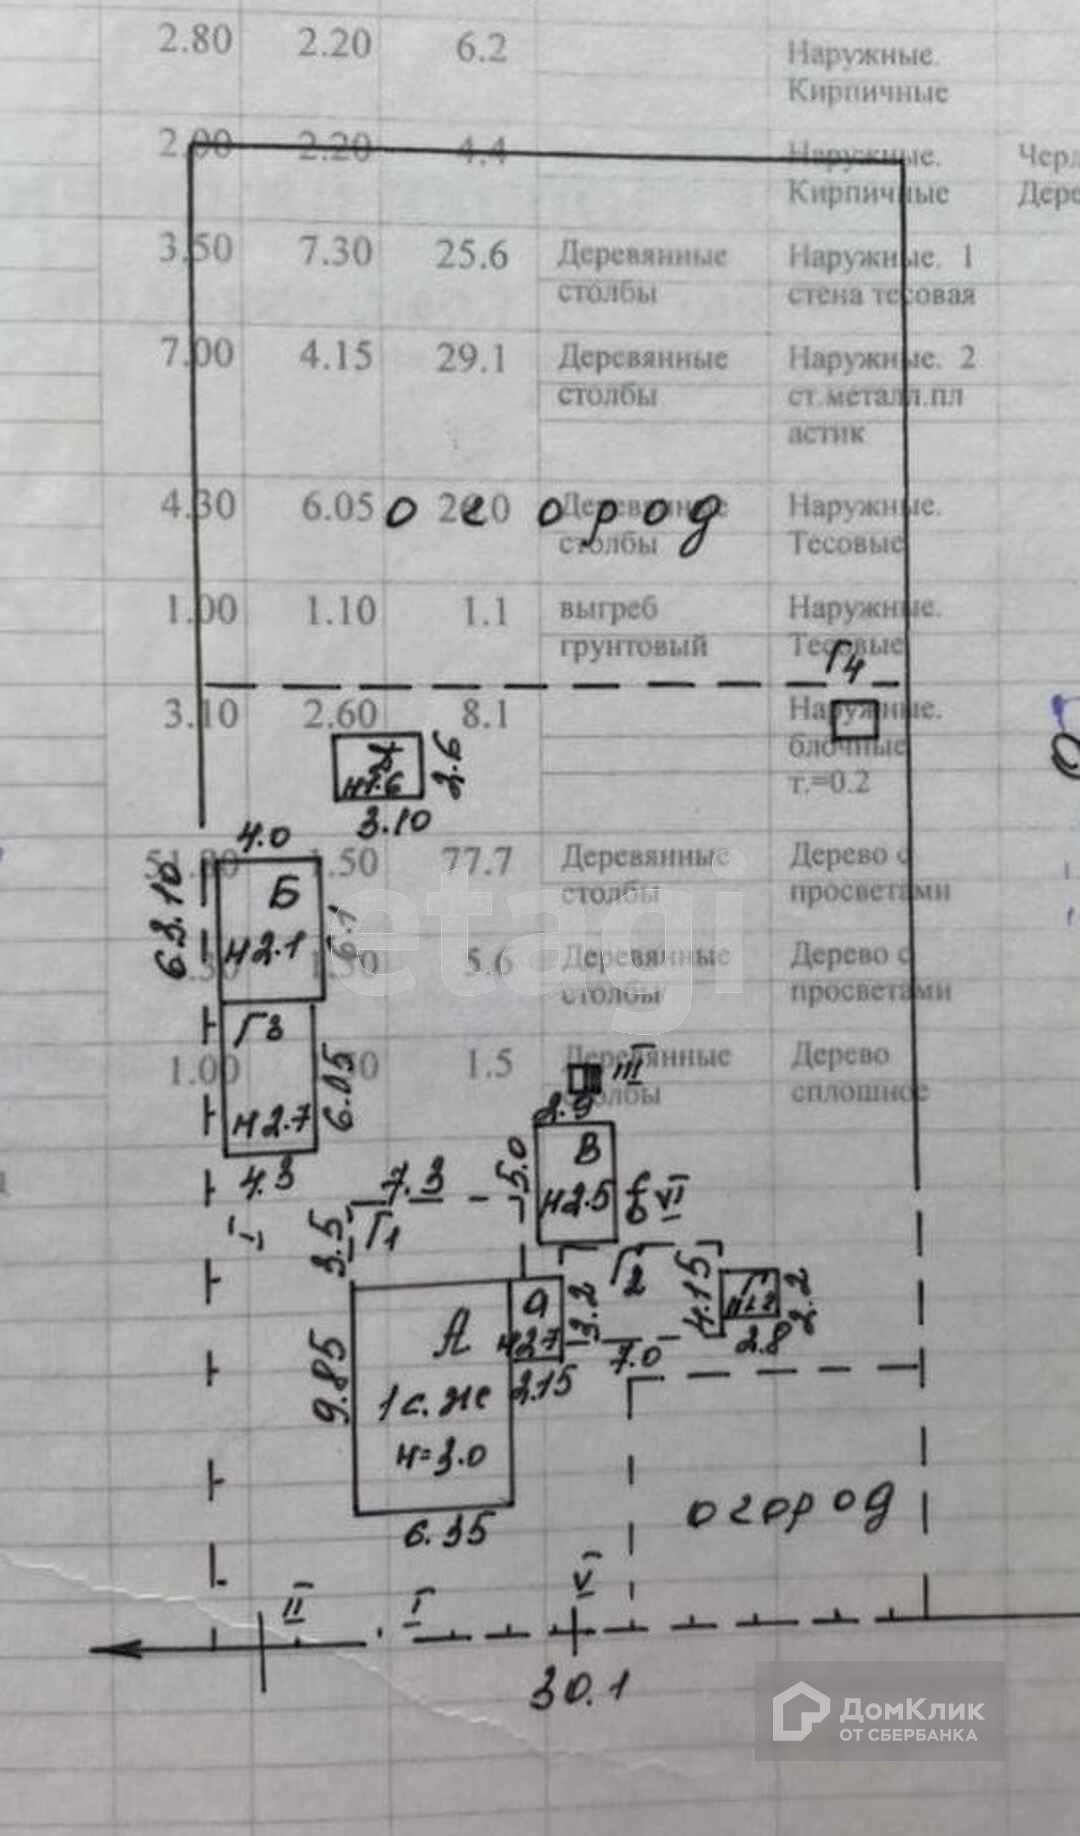 2.80 2.20 6.2 Наружные.
Кирпичные
2.00 2.20 4.4 Наружные. Черд
Кирпичные Дере
3.50 7.30 25.6 Деревянные Наружные. 1
столбы стена тесовая
7.00 4.15 29.1 Деревянные Наружные. 2
столбы ст.металл.пл
астик
4.30 6.05 26.0 Деревянные Наружные.
столбы Тесовые
огород
1.00 1.10 1.1 выгреб Наружные.
грунтовый Тесовые
Г4
3.10 2.60 8.1 Наружные.
блочные
т.=0.2
Д 2.6
н1.6
3.10
4.0
51.80 1.50 77.7 Деревянные Дерево с
столбы просветами
63.10 Б
н2.1 6.1
1.50 5.6 Деревянные Дерево с
столбы просветами
Г3
1.00 1.5 Деревянные Дерево
столбы сплошное
III
6.05
н2.7
4.3
2.9
5.0 В
н2.5 VI
7.3
3.5 Г1
Г2
4.15
2.2
2.8
а 3.2
н2.7
7.0
2.15
9.85 А
1с.же
н=3.0
6.35
огород
II I V
30.1
etagi
ДомКлик
ОТ СБЕРБАНКА